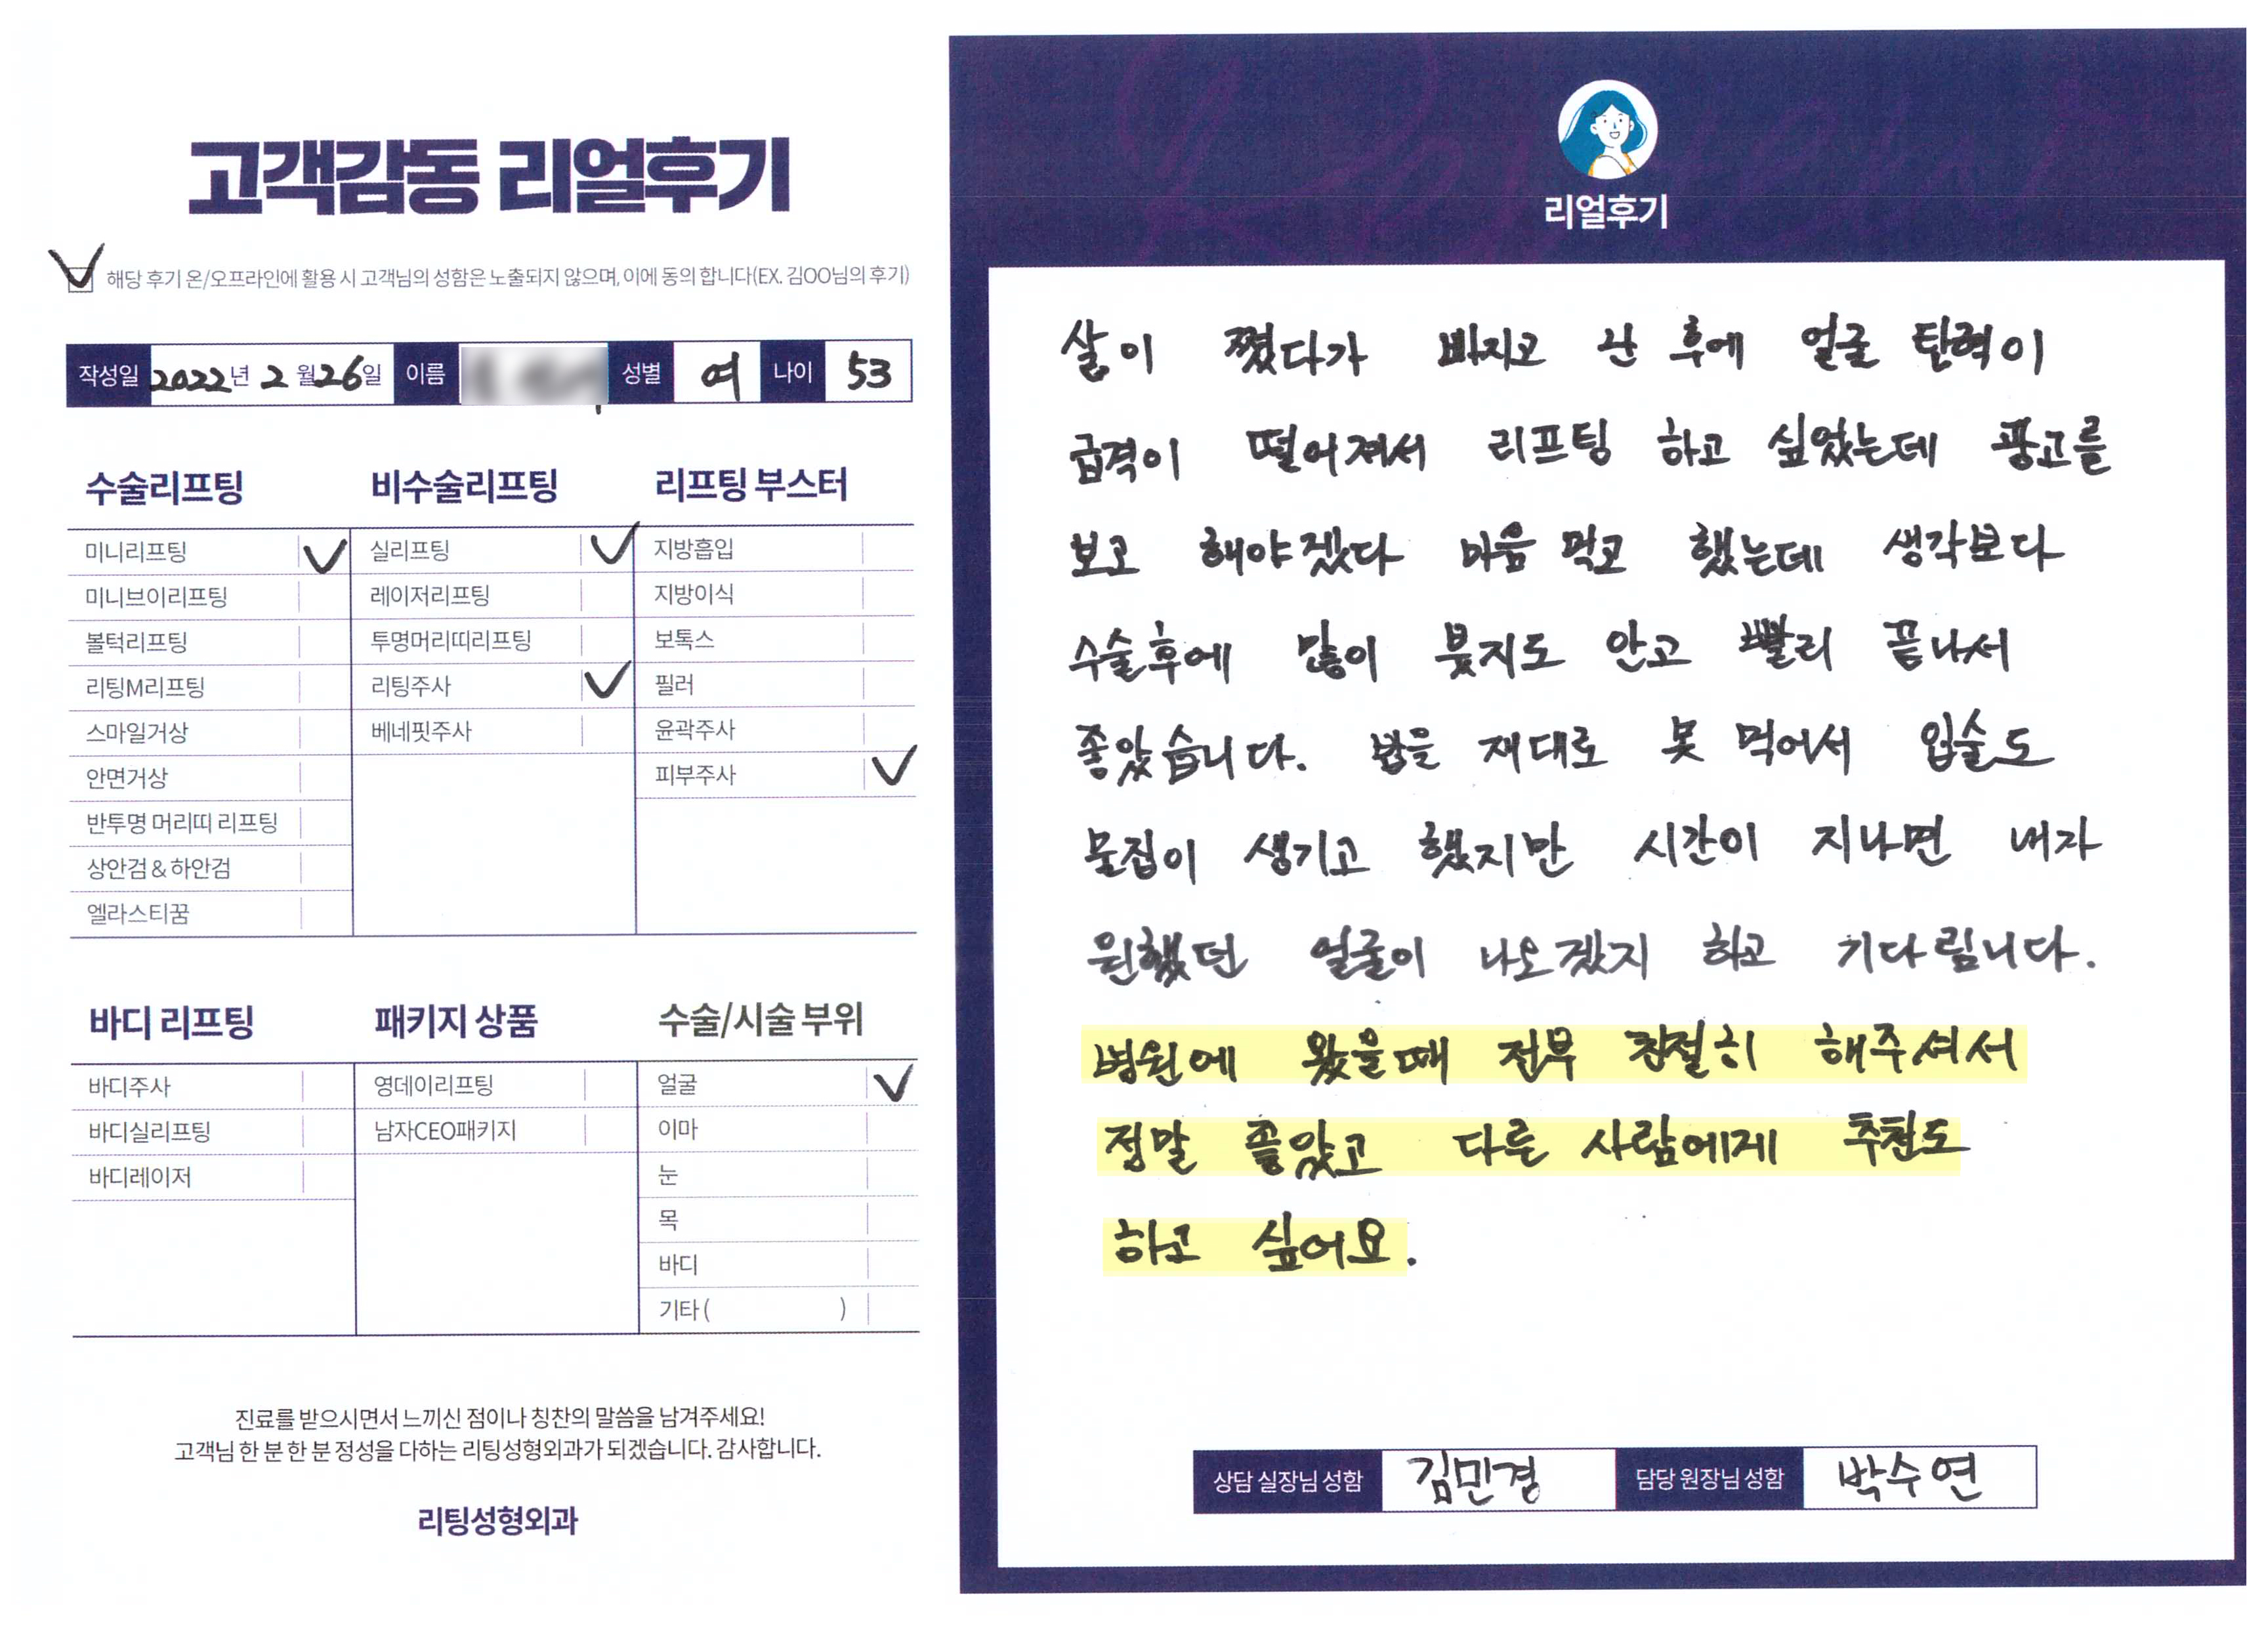 고객감동 리얼후기
해당 후기 온/오프라인에 활용 시 고객님의 성함은 노출되지 않으며, 이에 동의 합니다(EX. 김OO님의 후기)
작성일 2022년 2월 26일 이름 성별 여 나이 53
수술리프팅
미니리프팅
미니브이리프팅
볼턱리프팅
리팅M리프팅
스마일거상
안면거상
반투명 머리띠 리프팅
상안검 & 하안검
엘라스티꿈
비수술리프팅
실리프팅
레이저리프팅
투명머리띠리프팅
리팅주사
베네핏주사
리프팅 부스터
지방흡입
지방이식
보톡스
필러
윤곽주사
피부주사
바디 리프팅
바디주사
바디실리프팅
바디레이저
패키지 상품
영데이리프팅
남자CEO패키지
수술/시술 부위
얼굴
이마
눈
목
바디
기타 ( )
진료를 받으시면서 느끼신 점이나 칭찬의 말씀을 남겨주세요!
고객님 한 분 한 분 정성을 다하는 리팅성형외과가 되겠습니다. 감사합니다.
리팅성형외과
리얼후기
살이 쪘다가 빠지고 난 후에 얼굴 탄력이
급격이 떨어져서 리프팅 하고 싶었는데 광고를
보고 해야겠다 마음 먹고 했는데 생각보다
수술후에 많이 붓지도 안고 빨리 끝나서
좋았습니다. 밥을 재대로 못 먹어서 입술도
물집이 생기고 했지만 시간이 지나면 내자
원했던 얼굴이 나오겠지 하고 기다림니다.
병원에 왔을때 전부 친절히 해주셔서
정말 좋았고 다른 사람에게 추천도
하고 싶어요.
상담 실장님 성함 김민경 담당 원장님 성함 박수연